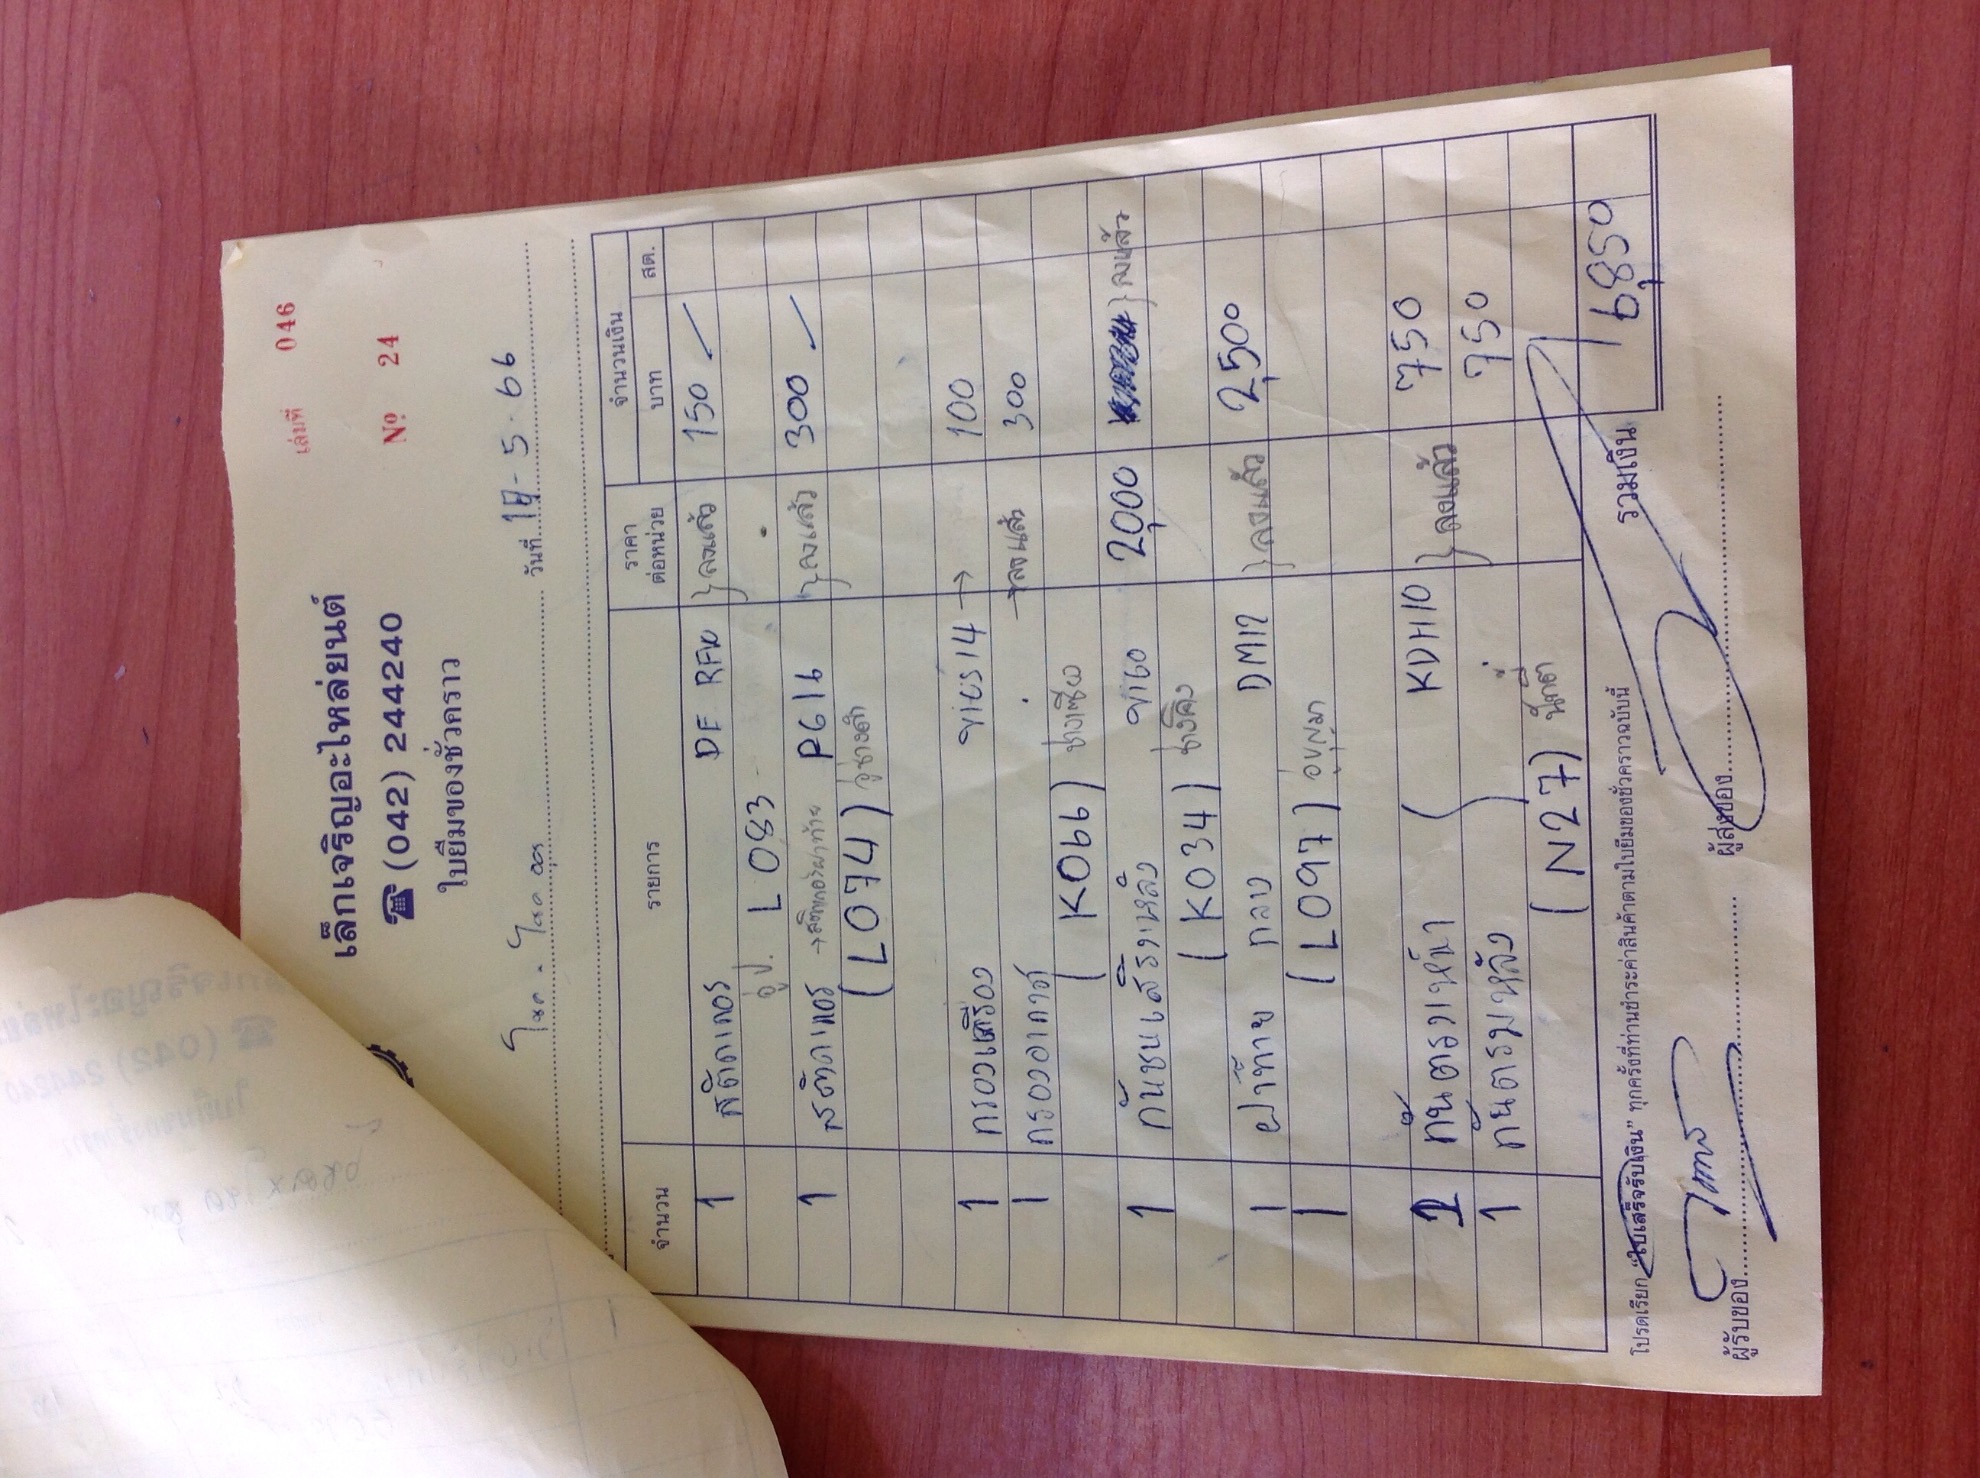 เล่มที่ 046
เล็กเจริญอะไหล่ยนต์
☎ (042) 244240 Nº 24
ใบยืมของชั่วคราว
วันที่ 17-5-66
จำนวน รายการ ราคาต่อหน่วย จำนวนเงิน
บาท สต.
1 สติตเกอร์ DF RFW ลงแล้ว 150
อู่ป. L083
1 สติตเกอร์ → สติกเกอร์ฝาท้าย P616 ลงแล้ว 300
(L074) อู่ช่างดำ
1 กรองเครื่อง VICS14 → 100
1 กรองอากาศ → ลงแล้ว 300
(K066)
1 กันชนเสริมหลัง VIGO 2,000 ลงแล้ว
(K034)
1 ฝาท้าย กลาง DM12 ลงแล้ว 2,500
1 (L097)
1 กันตรงหน้า KDH110 ลงแล้ว 750
1 กันตรมหลัง 750
(N27)
รวมเงิน 6,850
โปรดเรียก "ใบเสร็จรับเงิน" ทุกครั้งที่ท่านชำระค่าสินค้าตามใบยืมของชั่วคราวฉบับนี้
ผู้รับของ ผู้ส่งของ